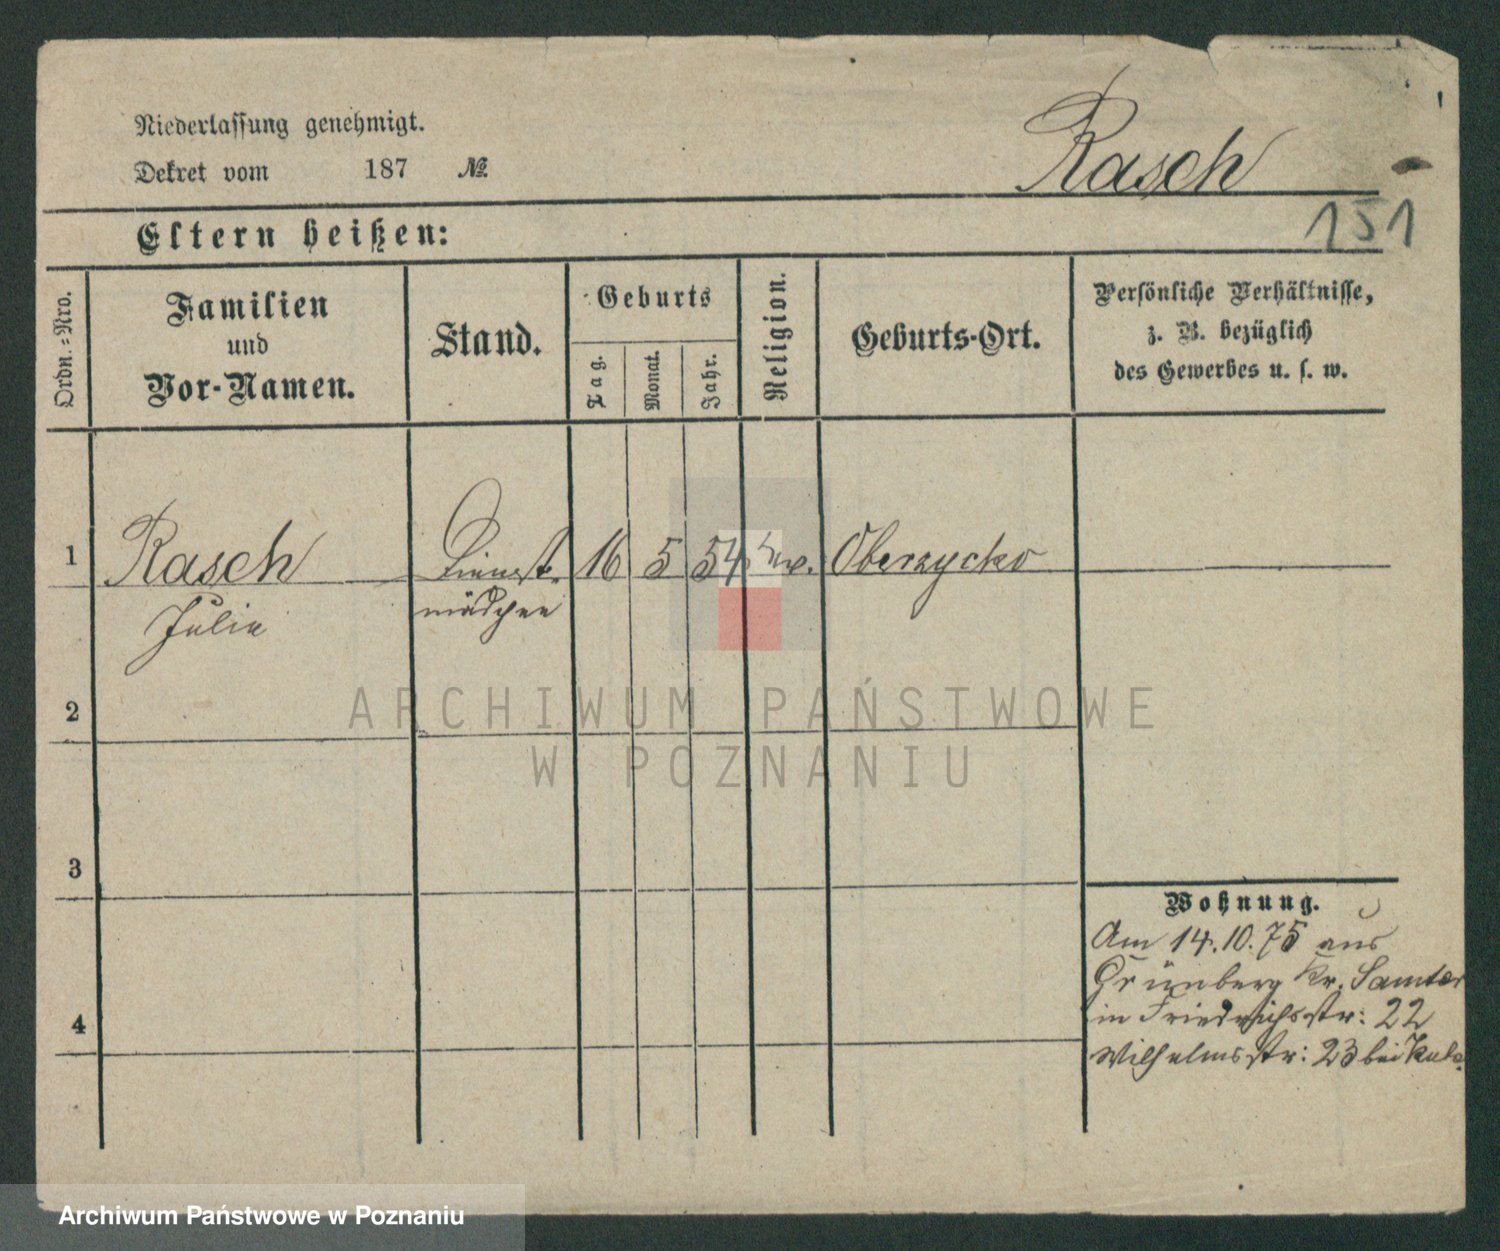 Niederlassung genehmigt.
Dekret vom 187 №
Rasch
151
Eltern heißen:
Ordn.-Nro.
Familien
und
Vor-Namen.
Stand.
Geburts
Tag.
Monat.
Jahr.
Religion.
Geburts-Ort.
Persönliche Verhältnisse,
z. B. bezüglich
des Gewerbes u. s. w.
1 Rasch Dienst- 16 5 54 ev. Oberzycko
Julie mädchen
2
ARCHIWUM PAŃSTWOWE
W POZNANIU
3
Wohnung.
Am 14.10.75 aus
Grünberg Kr. Samter
in Friedrichsstr: 22
Wilhelmsstr: 23 bei
4
Archiwum Państwowe w Poznaniu